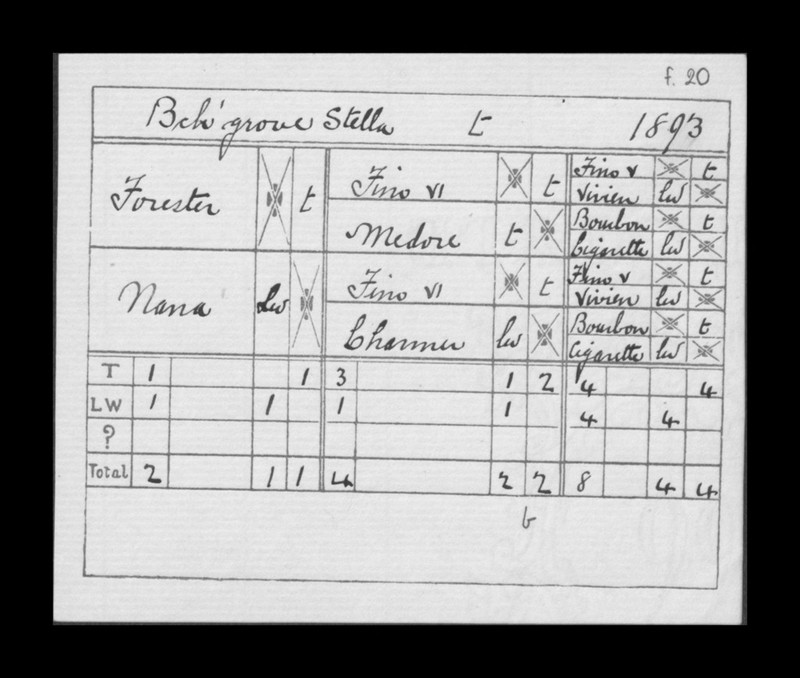 f. 20
Bch'grove Stella t 1893
Forester t
Fino VI t
Medore t
Fino V t
Vivien lw
Bourbon t
Cigarette lw
Nana lw
Fino VI t
Charmer lw
Fino V t
Vivien lw
Bourbon t
Cigarette lw
T 1 1 3 1 2 4 4
LW 1 1 1 1 4 4
?
Total 2 1 1 4 2 2 8 4 4
b